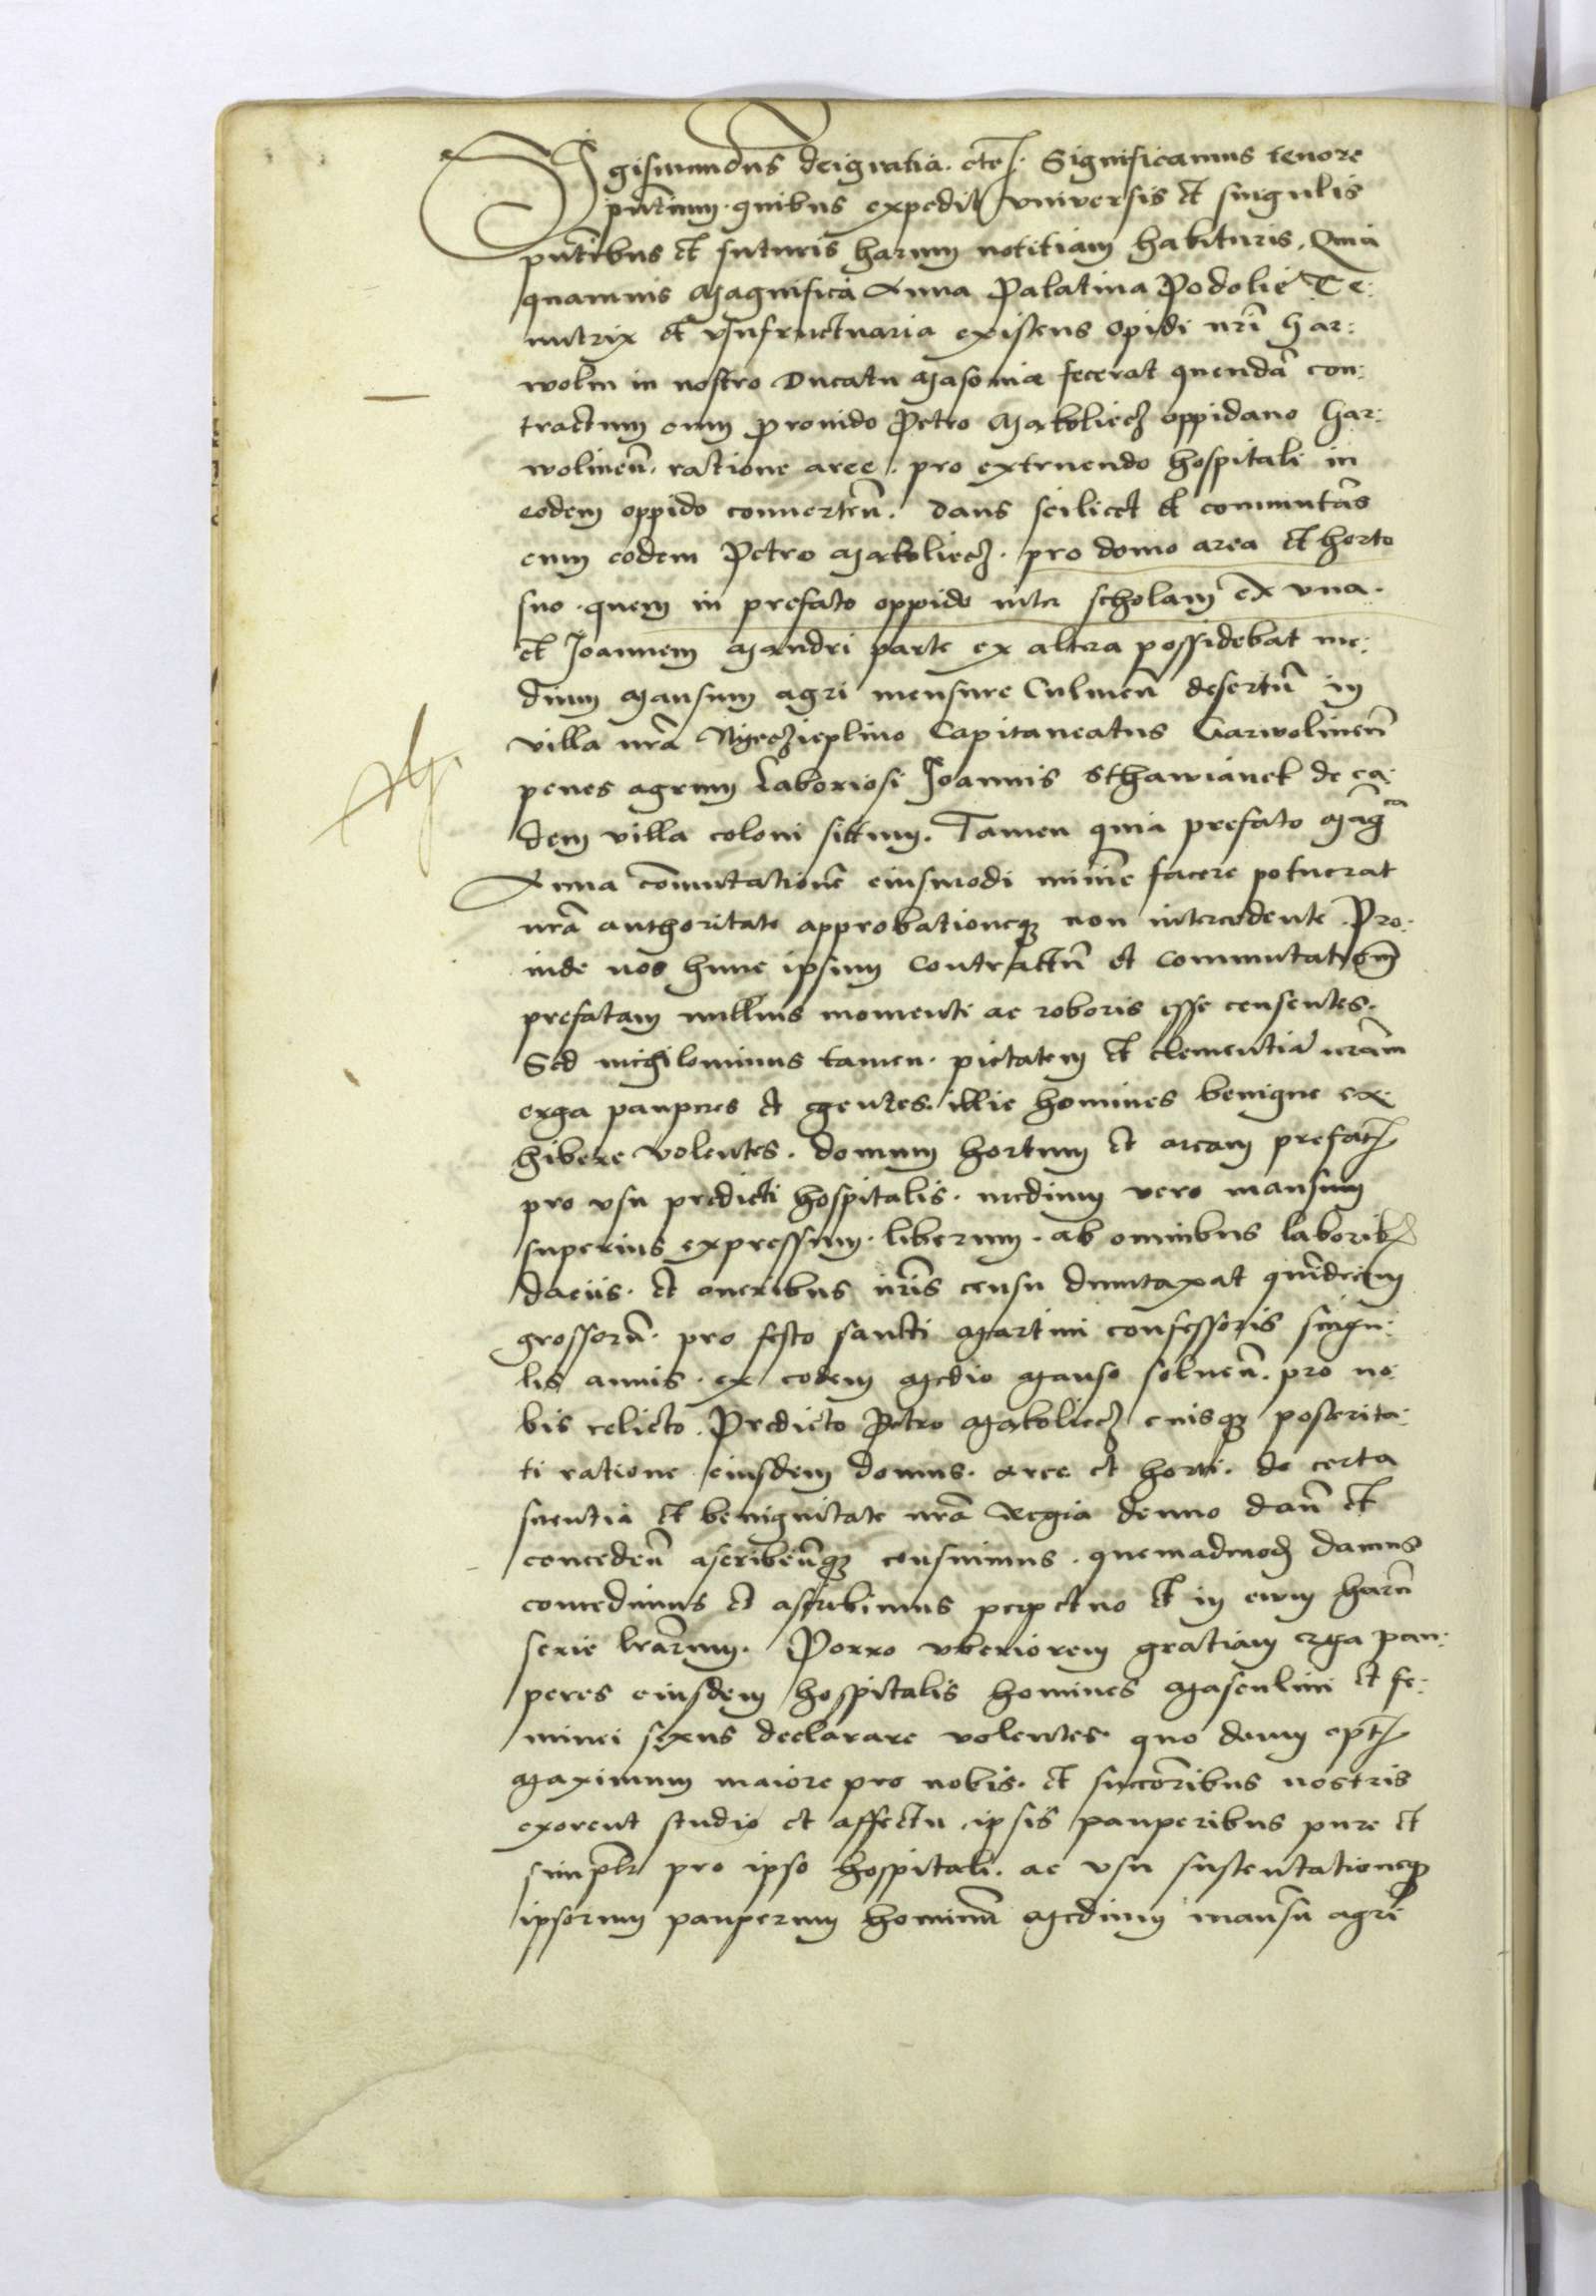 Sigismundus dei gratia. etc. Significamus tenore
pntium. quibus expedit vniversis et singulis
pntibus et futuris harum notitiam habituris. Quia
quamuis Magnifica Anna Palatina Podolie Te:
nutrix et vsufructuaria existens opidi nri Har:
wolin in nostro Ducatu Masouiæ fecerat quendã con:
tractum cum prouido Petro Makoliecz oppidano Har:
wolineñ. ratione aree. pro extruendo hospitali in
eodem oppido conuerteñ. dans scilicet et commutãs
cum eodem Petro Makoliecz. pro domo area et horto
suo. quem in prefato oppido inter scholam ex vna.
et Joannem Mandri parte ex altera possidebat me:
dium Mansum agri mensure Culmeñ desertũ in
villa nrã Capitaneatus Garwolineñ
penes agrum Laboriosi Joannis Sthawianek de ea:
dem villa coloni situm. Tamen quia prefato Mãgca
Anna cõmutationẽ eiusmodi minime facere potuerat
nrã authoritate approbationeqз non intercedente. Pro:
inde nos hunc ipsum contractũ et commutationẽ
prefatam nullius momenti ac roboris esse censentes.
Sed nichilominus tamen. pietatem et clementiã nrãm
erga pauperes et egentes. illic homines benigne ex:
hibere volentes. domum hortum et aream prefat
pro vsu predicti hospitalis. medium vero mansum
superius expressum. liberum. ab omnibus laborib
daciis. et oneribus nris censu duntaxat quĩdecim
grossorũ. pro festo sancti Martini confessoris singu:
lis annis. ex eodem Medio Manso solueñ. pro no:
bis relicto. Predicto Petro Makoliecz eiusqз posterita:
ti ratione eiusdem domus. aree et horti. de certa
scientia et benignitate nrã Regia denuo dañ et
concedeñ ascribeñqз censuimus. quemadmod damus
concedimus et ascribimus perpetuo et in evum harũ
serie lrãrum. Porro vberiorem gratiam erga pau:
peres eiusdem hospitalis homines Masculini et fe:
minei sexus declarare volentes. quo deum opt
Maximum maiore pro nobis. et succoribus nostris
exorent studio et affectu ipsis pauperibus pure et
simplr pro ipso hospitali. ac vsu sustentationeqз
ipsorum pauperum hominũ Medium mansũ agri